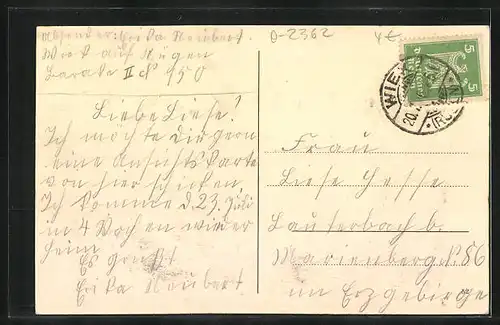 Absender: Erika Neubert
Wiek auf Rügen
Baracke II No 150
Liebe Liese!
Ich möchte dir gern
eine Ansichtskarte
von hier schicken.
Ich komme d. 23. Juli
in 4 Wochen wieder
heim
Es grüßt
Erika Neubert
D-2362
4€
WIEK
(RÜGEN)
20.
5
5
Frau
Liese Hesse
Lauterbach b.
Marienberg No. 86
im Erzgebirge